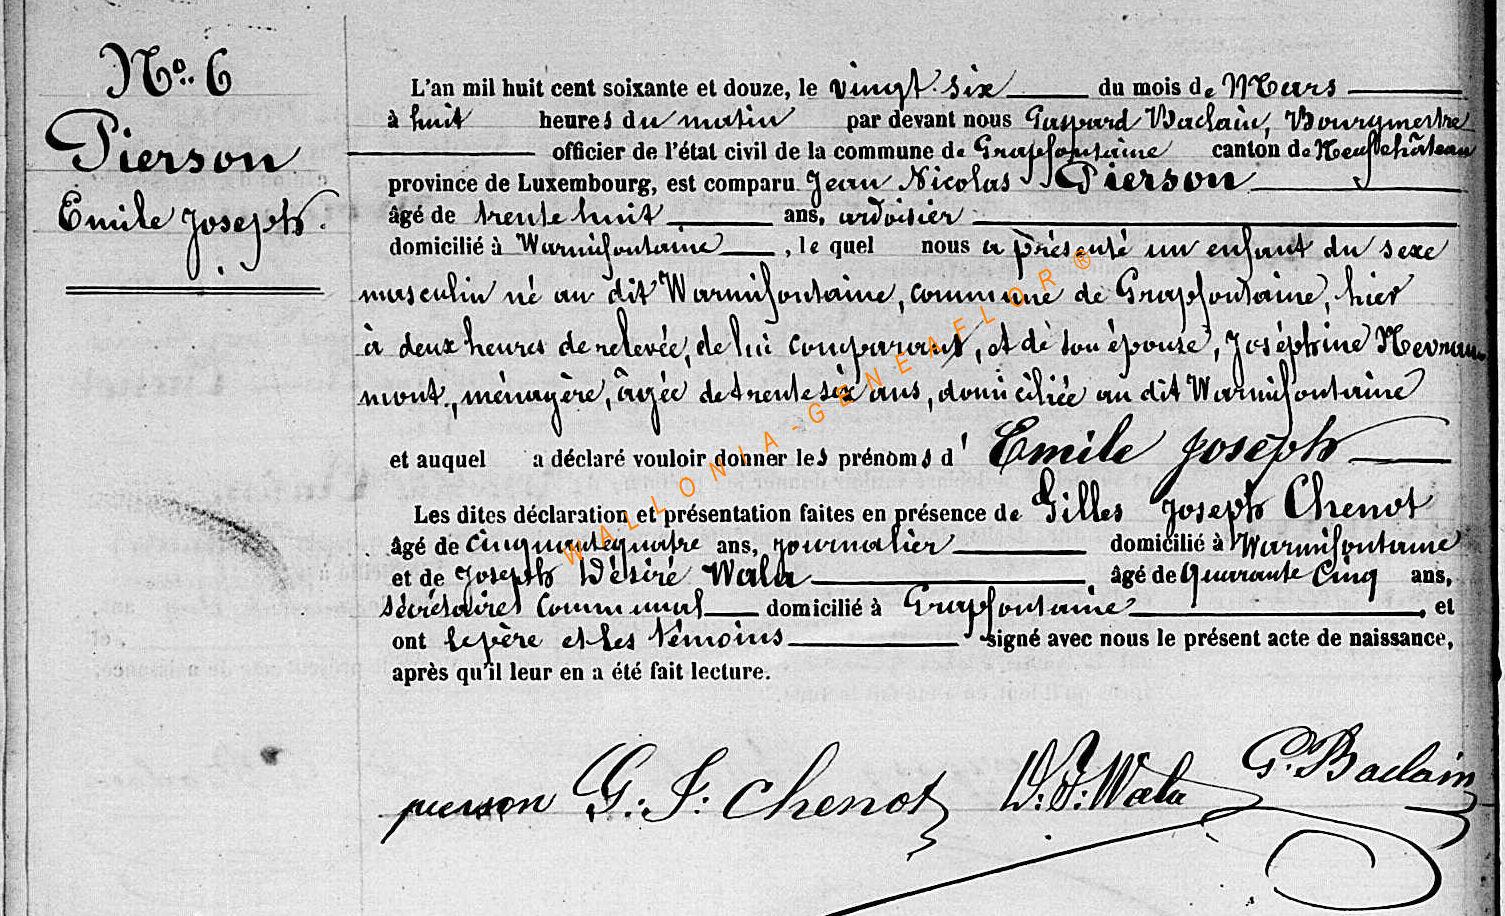 No. 6
Pierson
Emile Joseph.
L'an mil huit cent soixante et douze, le vingt-six du mois de Mars
à huit heures du matin par devant nous Gaspard Baclain, Bourgmestre
officier de l'état civil de la commune de Grapfontaine canton de Neufchâteau
province de Luxembourg, est comparu Jean Nicolas Pierson
âgé de trente huit ans, ardoisier
domicilié à Warmifontaine, le quel nous a présenté un enfant du sexe
masculin né au dit Warmifontaine, commune de Grapfontaine, hier
à deux heures de relevée, de lui comparant, et de son épouse, Joséphine Nevrau-
mont, ménagère, âgée de trente six ans, domiciliée au dit Warmifontaine
et auquel a déclaré vouloir donner les prénoms d' Emile Joseph
Les dites déclaration et présentation faites en présence de Gilles Joseph Chenot
âgé de cinquante quatre ans, journalier domicilié à Warmifontaine
et de Joseph Désiré Wala âgé de quarante cinq ans,
sécrétaire communal domicilié à Grapfontaine, et
ont le père et les témoins signé avec nous le présent acte de naissance,
après qu'il leur en a été fait lecture.
pierson G. J. Chenot D. J. Wala G. Baclain
WALLONIA-GENEAFLOR®